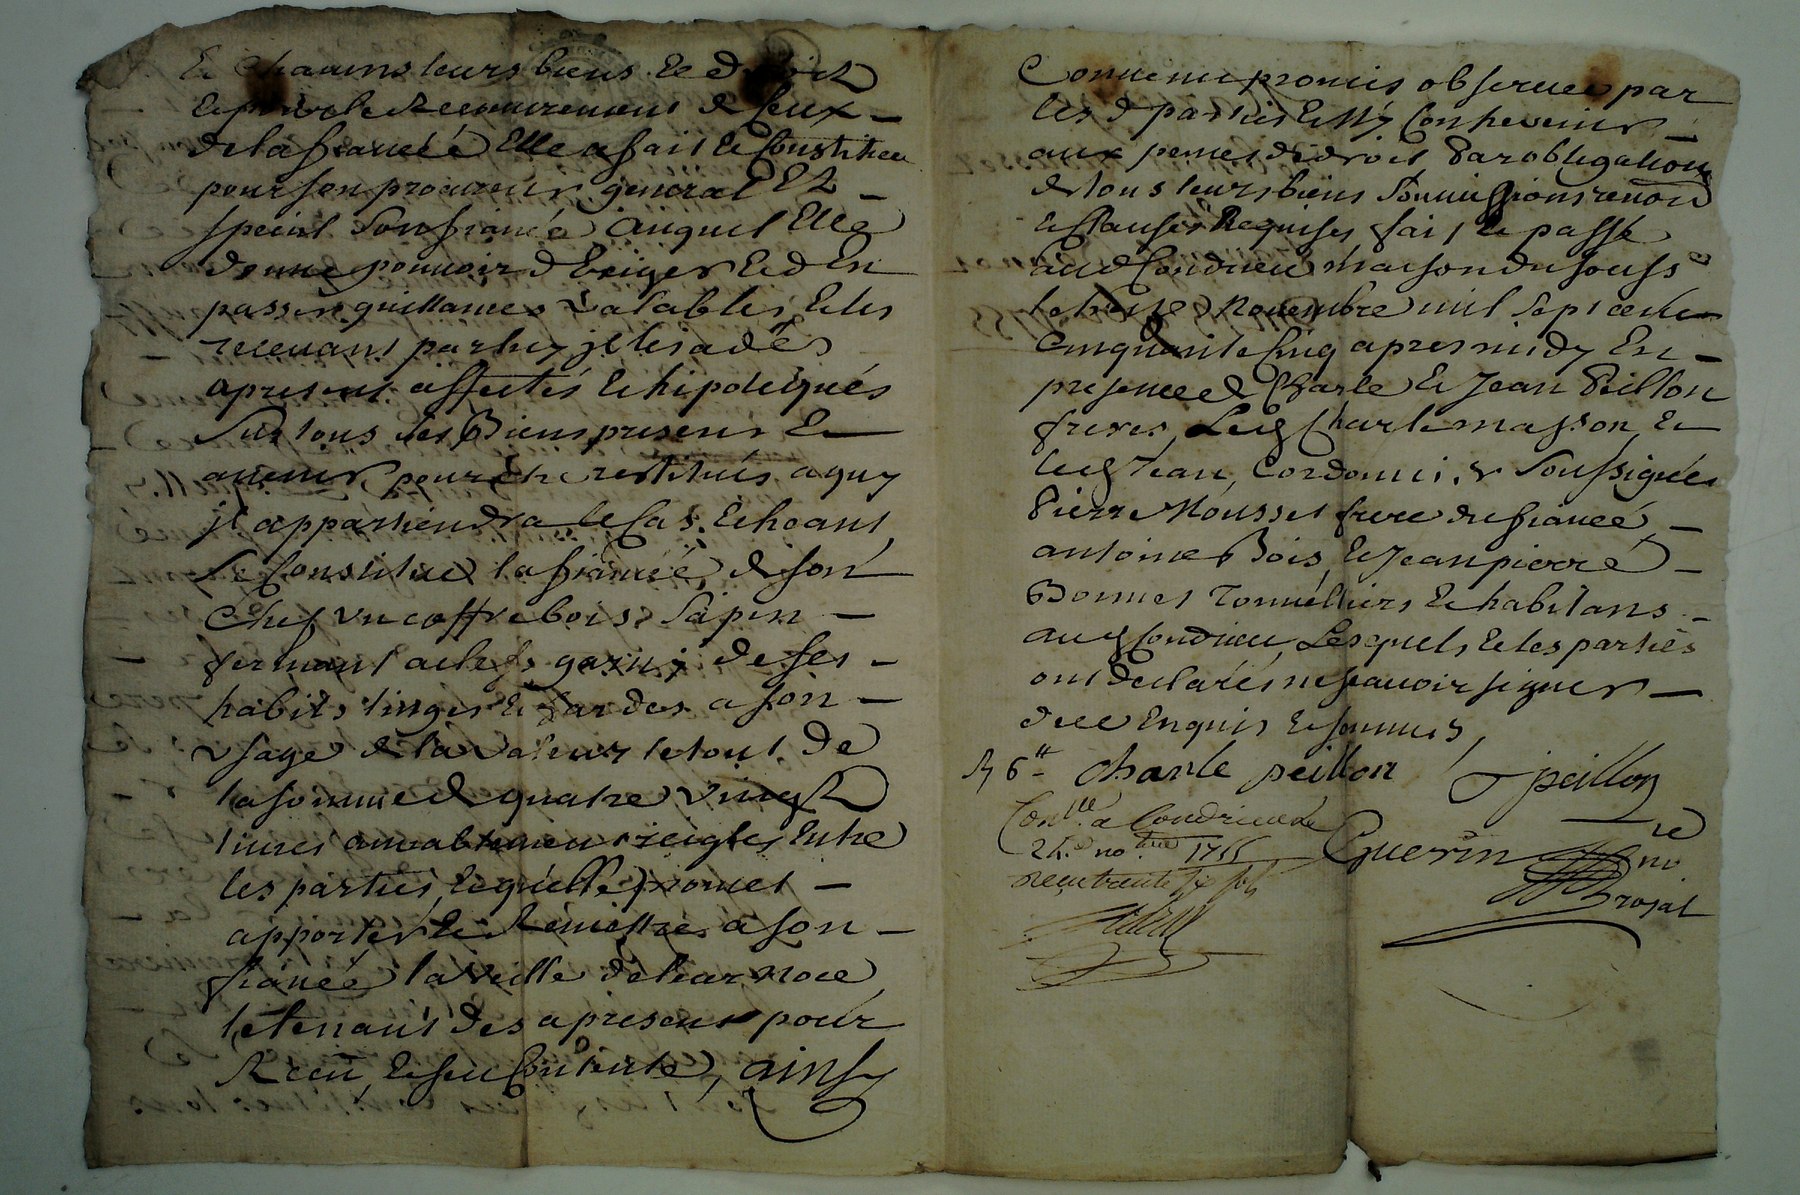 Et chacuns leurs biens et droict
et pour le Recouvrement de Ceux
de la fiancéé Elle a fait et Constitué
pour son procureur general Et
special Son fiancé auquel Elle
donne pouvoir d'Exiger et d'En
passer quittances valables, et les
recevant par luy jl les a dés
apresent affectés et hipotéqués
Sur tous ses Biens presens Et
avenir pour étre restitués a quy
jl appartiendra le Cas Echeant,
Se Constitue la fiancéé, de son
Chef un coffre bois Sapin
fermant a clefs garny de ses
habits, linges et hardes a son
usage de la valeur le tout de
la somme de quatre vingt
livres amiablement reiglés Entre
les parties, lequel Elle promet
apporter et Remettre a son
fiancé la veille de leur noce
le tenant des apresent pour
Receu, et s'en Contente, ainsy
Convenu promis observer par
les d parties et n'y Contrevenir
aux peines de droit Par obligation
de tous leurs biens Soumissions renon
et Clauses Requises fait et passé
aud Condrieu maison du souss
le novembre mil sept cent
Cinquante Cinq apres midy En
presence de Charle et Jean Peillon
freres, led Charle masson, et
led Jean, Cordonnier Soussignés
Pierre Mousset frere du fiancé
antoine Bois, et Jean pierre
Bonnet Tonnelliers et habitans
aud Condrieu, Lesquels et les parties
ont declarés ne scavoir signer
de ce Enquis et sommés,
R 6tt Charle peillon J peillon
Con.lle a Condrieu le
24e no.bre 1755 Guerin
Reçu trente six sols no.re
Proyal